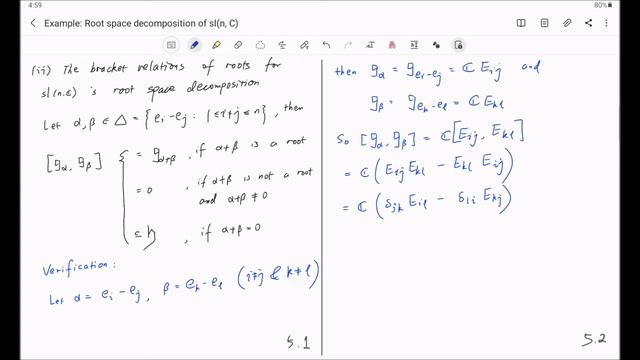 4:59
80%
Example: Root space decomposition of sl(n, C)
(ii) The bracket relations of roots for
sl(n,C) is root space decomposition
Let α, β ∈ Δ = { e_i - e_j : 1 ≤ i ≠ j ≤ n }, then
[g_α, g_β] { = g_{α+β}, if α+β is a root
= 0, if α+β is not a root
and α+β ≠ 0
⊆ h, if α+β = 0
Verification:
Let α = e_i - e_j, β = e_k - e_l (i≠j & k≠l)
5.1
then g_α = g_{e_i-e_j} = ℂ E_{ij} and
g_β = g_{e_k-e_l} = ℂ E_{kl}
So [g_α, g_β] = ℂ [E_{ij}, E_{kl}]
= ℂ (E_{ij} E_{kl} - E_{kl} E_{ij})
= ℂ (δ_{jk} E_{il} - δ_{li} E_{kj})
5.2